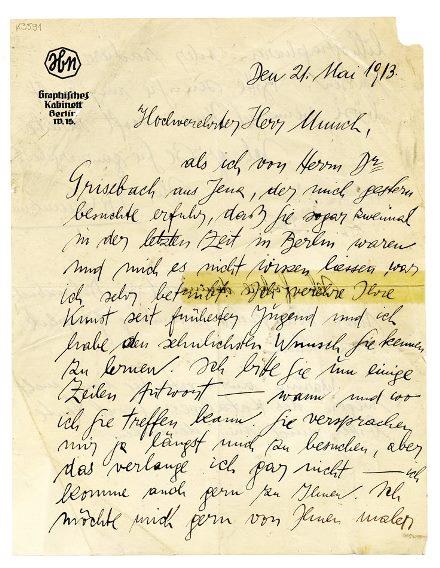 K3591
Graphisches
Kabinett
Berlin
W. 15.
Den 21. Mai 1913.
Hochverehrter Herr Munch,
als ich von Herrn Dr
Grisebach aus Jena, der mich gestern
besuchte erfuhr, daß Sie sogar zweimal
in der letzten Zeit in Berlin waren
und mich es nicht wissen liessen war
ich sehr betrübt. Ich verehre Ihre
Kunst seit frühester Jugend und ich
habe den sehnlichsten Wunsch Sie kennen
zu lernen. Ich bitte Sie um einige
Zeilen Antwort — wann und wo
ich Sie treffen kann Sie versprachen
mir ja längst mich zu besuchen, aber
das verlange ich gar nicht — ich
komme auch gern zu Ihnen. Ich
möchte mich gern von Ihnen malen